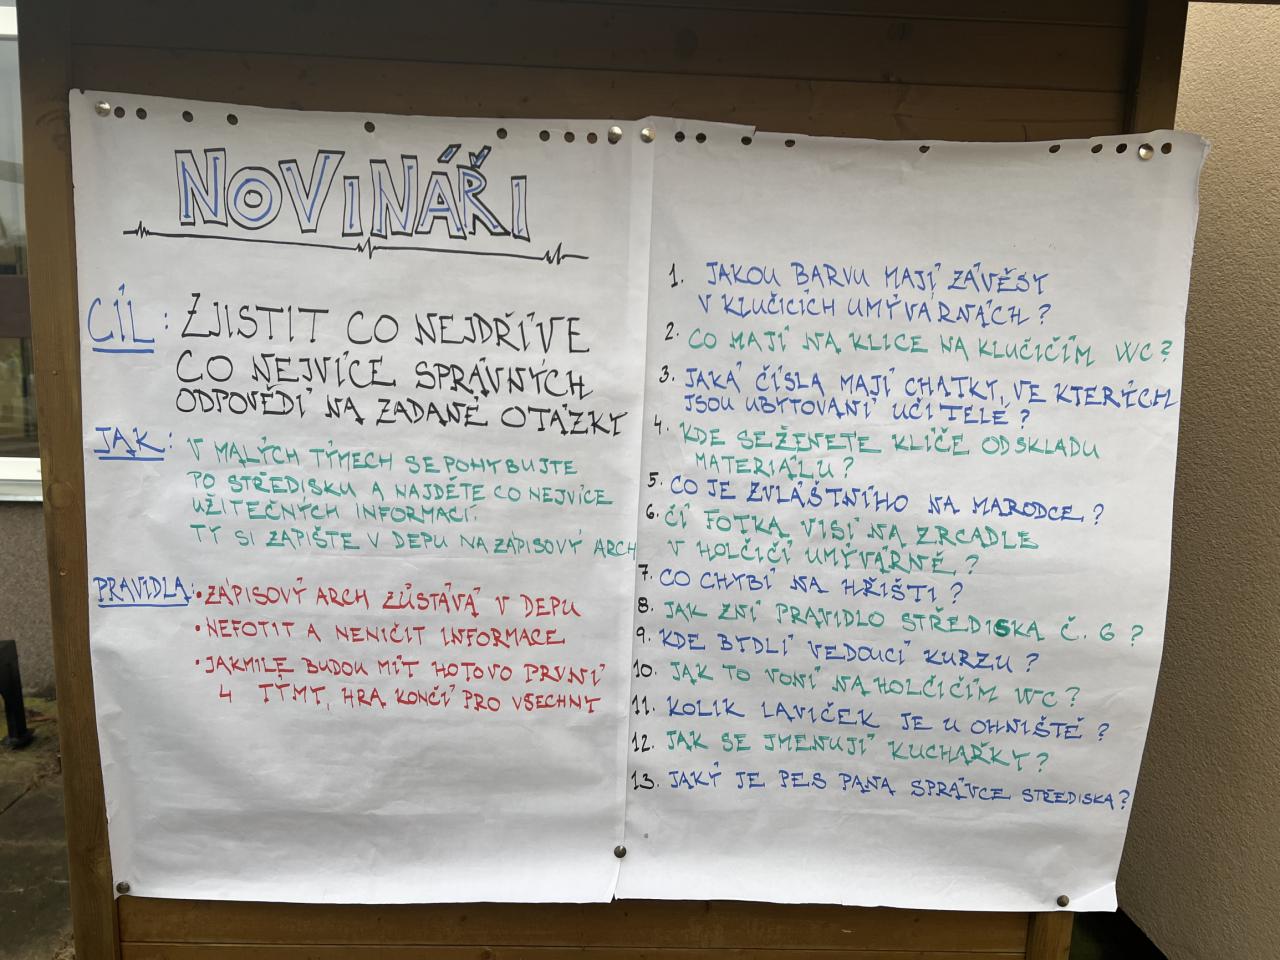 NOVINÁŘI
CÍL: ZJISTIT CO NEJDŘÍVE
CO NEJVÍCE SPRÁVNÝCH
ODPOVĚDÍ NA ZADANÉ OTÁZKY
JAK: V MALÝCH TÝMECH SE POHYBUJTE
PO STŘEDISKU A NAJDĚTE CO NEJVÍCE
UŽITEČNÝCH INFORMACÍ.
TY SI ZAPIŠTE V DEPU NA ZÁPISOVÝ ARCH
PRAVIDLA: • ZÁPISOVÝ ARCH ZŮSTÁVÁ V DEPU
• NEFOTIT A NENIČIT INFORMACE
• JAKMILE BUDOU MÍT HOTOVO PRVNÍ
4 TÝMY, HRA KONČÍ PRO VŠECHNY
1. JAKOU BARVU MAJÍ ZÁVĚSY
V KLUČIČÍCH UMÝVÁRNÁCH?
2. CO MAJÍ NA KLICE NA KLUČIČÍM WC?
3. JAKÁ ČÍSLA MAJÍ CHATKY, VE KTERÝCH
JSOU UBYTOVANÍ UČITELÉ?
4. KDE SEŽENETE KLÍČE OD SKLADU
MATERIÁLU?
5. CO JE ZVLÁŠTNÍHO NA MARODCE?
6. ČÍ FOTKA VISÍ NA ZRCADLE
V HOLČIČÍ UMÝVÁRNĚ?
7. CO CHYBÍ NA HŘIŠTI?
8. JAK ZNÍ PRAVIDLO STŘEDISKA Č. 6?
9. KDE BYDLÍ VEDOUCÍ KURZU?
10. JAK TO VONÍ NA HOLČIČÍM WC?
11. KOLIK LAVIČEK JE U OHNIŠTĚ?
12. JAK SE JMENUJÍ KUCHAŘKY?
13. JAKÝ JE PES PANA SPRÁVCE STŘEDISKA?